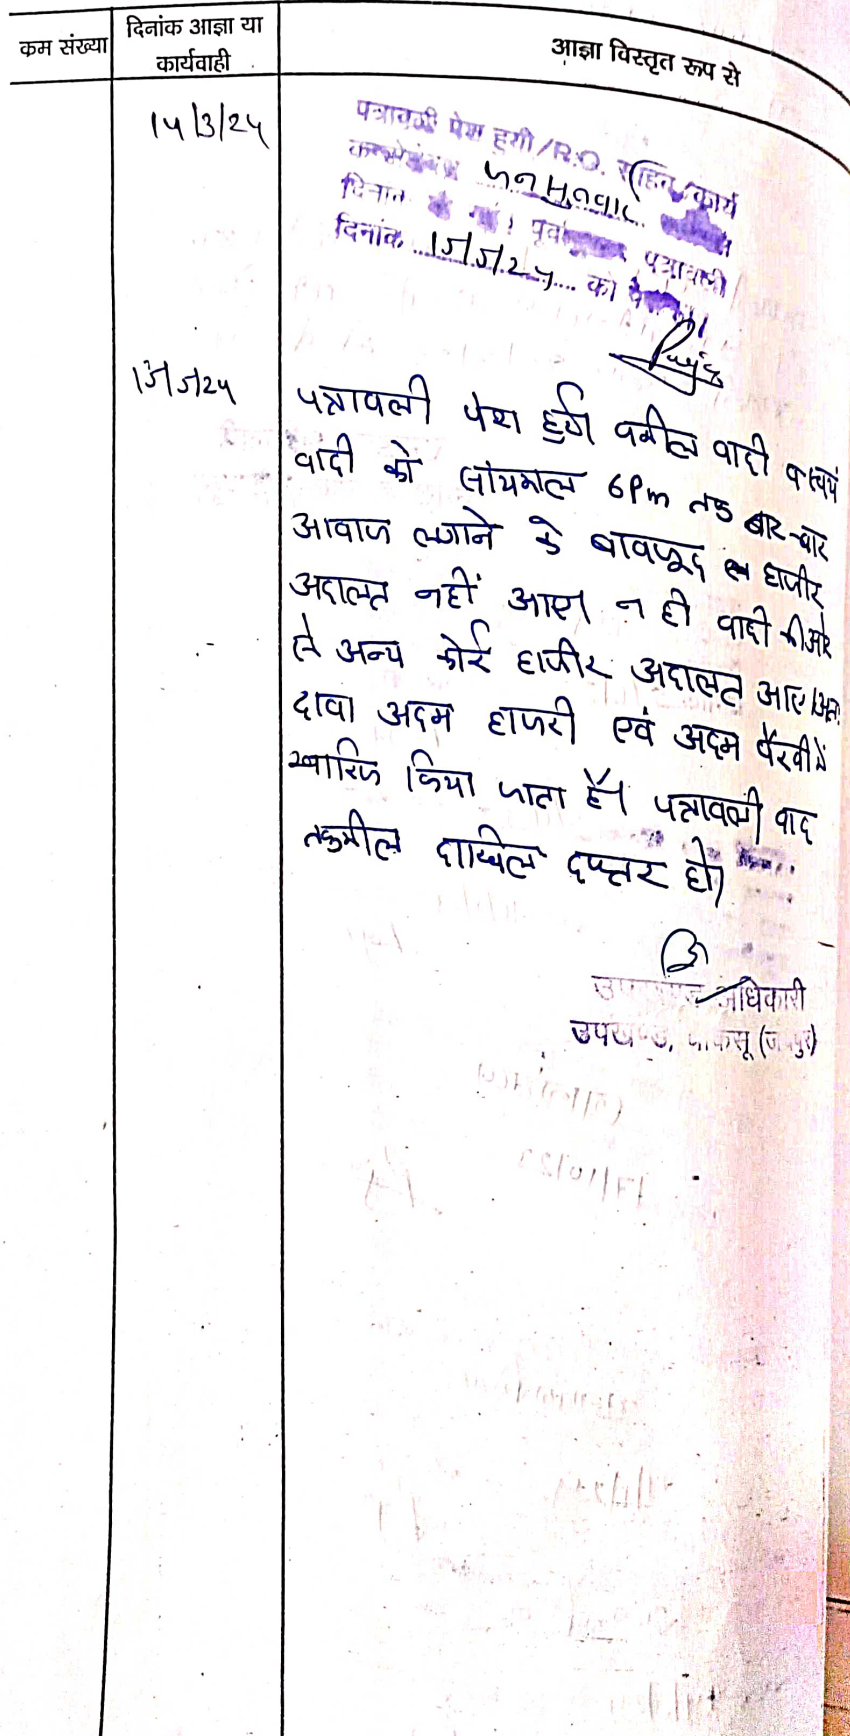 कम संख्या
दिनांक आज्ञा या
कार्यवाही
आज्ञा विस्तृत रूप से
पत्रावली पेश हुयी/R.O. सहित कार्य
जनसुनवाई
पत्रावली
दिनांक को
पत्रावली पेश हुयी वकील वादी व स्वयं
वादी को सांयकाल 6Pm तक बार-बार
आवाज लगाने के बावजूद हाजीर
अदालत नहीं आए। न ही वादी की ओर
से अन्य कोई हाजीर अदालत आए। अतः
दावा अदम हाजरी एवं अदम पैरवी में
खारिज किया जाता है। पत्रावली वाद
तकमील दाखिल दफ्तर हो।
अधिकारी
उपखण्ड, चाकसू (जयपुर)